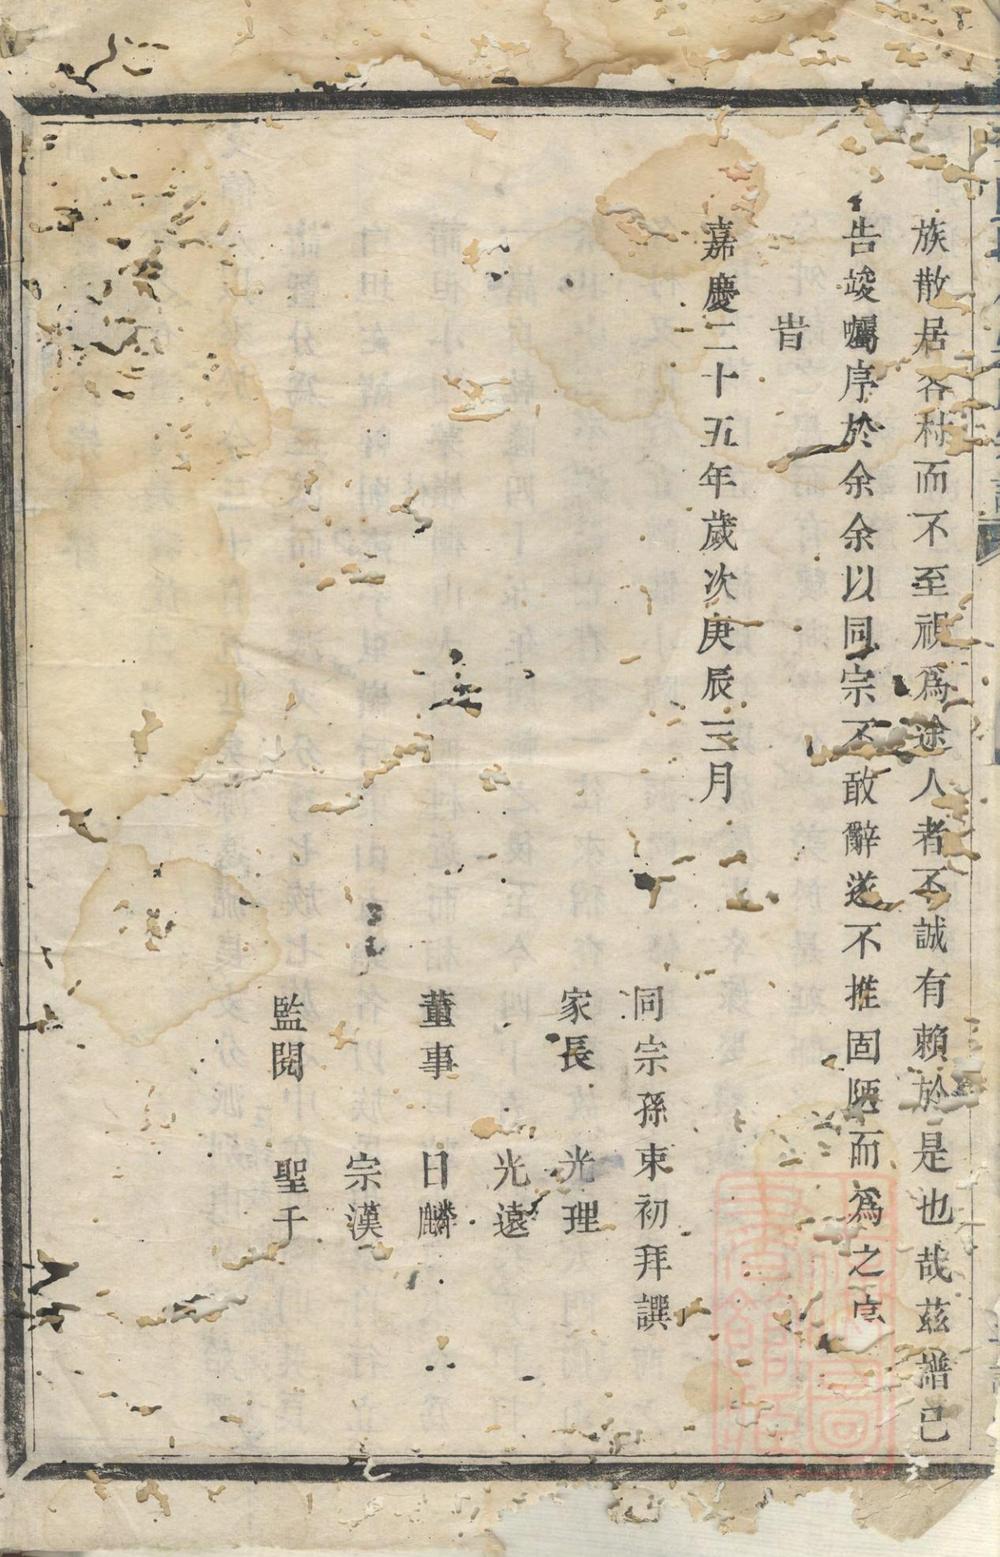 族散居各村而不至視爲途人者不誠有賴於是也哉茲譜已
告竣囑序於余余以同宗不敢辭遂不推固陋而爲之序
旹
嘉慶二十五年歲次庚辰三月
同宗孫東初拜譔
家長 光理
光遠
董事 日麟
宗漢
監閱 聖千